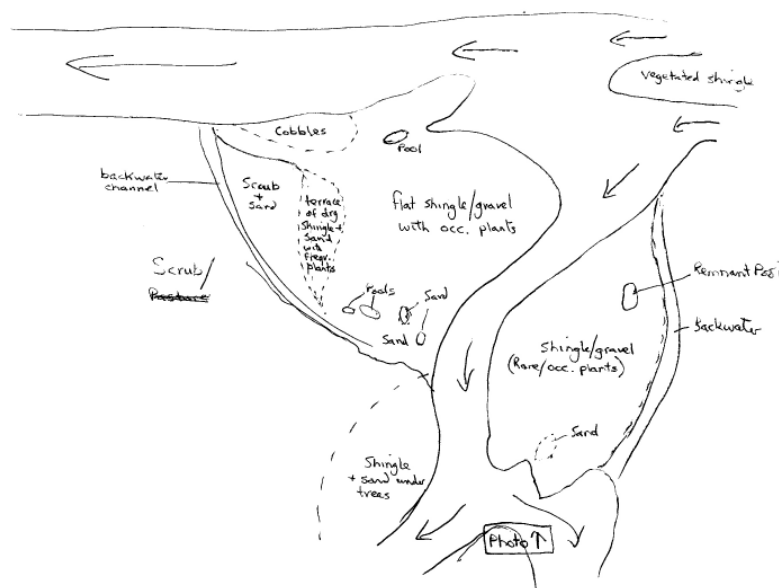 vegetated shingle
Cobbles
Pool
backwater
channel
Scrub
+
Sand
terrace
of dry
Shingle +
Sand
with
Freqr.
plants
flat shingle/gravel
with occ. plants
Scrub/
Pasture
Remnant Pool
Pools
Sand
Sand
Backwater
Shingle/gravel
(Rare/occ. plants)
Sand
Shingle
+ sand under
trees
Photo ↑